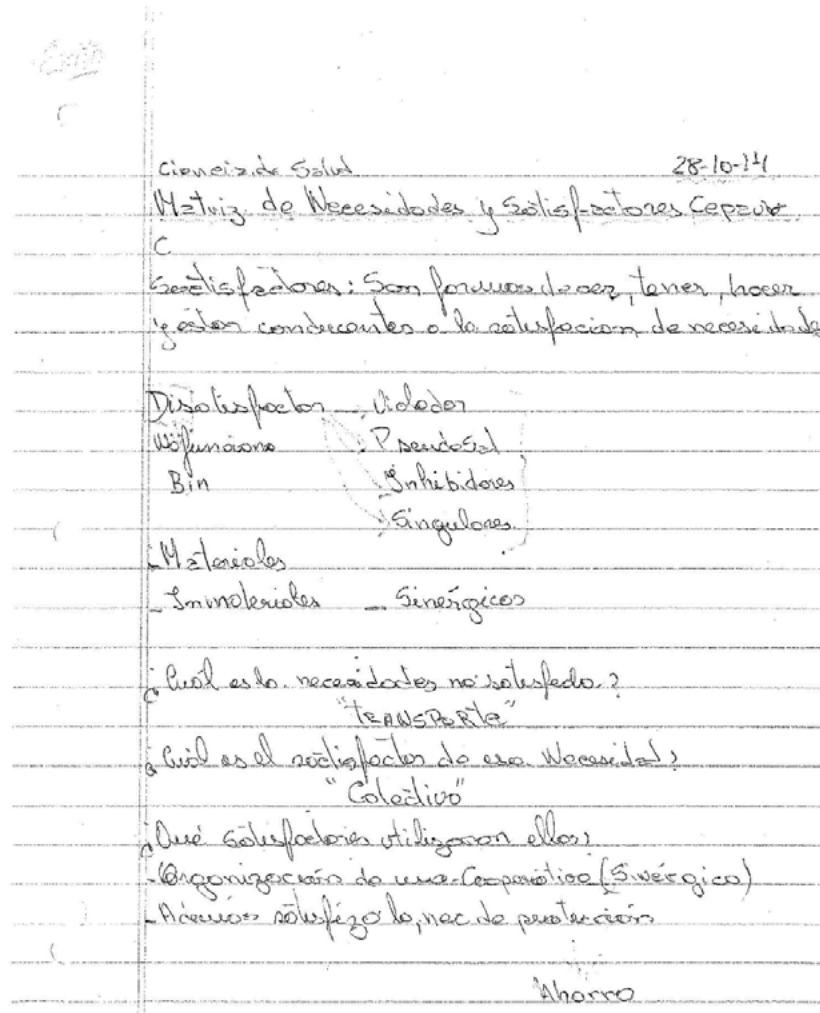 Ciencia de Salud 28-10-14
Matriz de Necesidades y Satisfactores Cepaur
C
Satisfactores: Son formas de ser, tener, hacer
y estar conducentes a la satisfacion de necesidade
Disatisfactor - Violador
No funciona Pseudosat
Bin Inhibidores
Singulares
- Materiales
- Inmateriales - Sinérgicos
¿Cuál es la necesidades no satisfeda?
"TRANSPORTe"
¿Cuál es el satisfactor de esa Necesidad?
"Colectivo"
¿Qué satisfactores utilizaron ellos?
- Organización de una Cooperativa (Sinérgico)
- Además satisfizo la, nec de protección
Ahorro